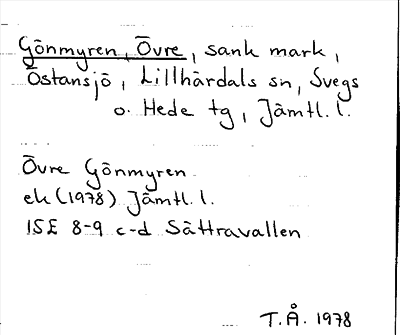 Gönmyren, Övre, sank mark,
Östansjö, Lillhärdals sn, Svegs
o. Hede tg, Jämtl. l.
Övre Gönmyren
ek (1978) Jämtl. l.
15E 8-9 c-d Sättravallen
T.Å. 1978